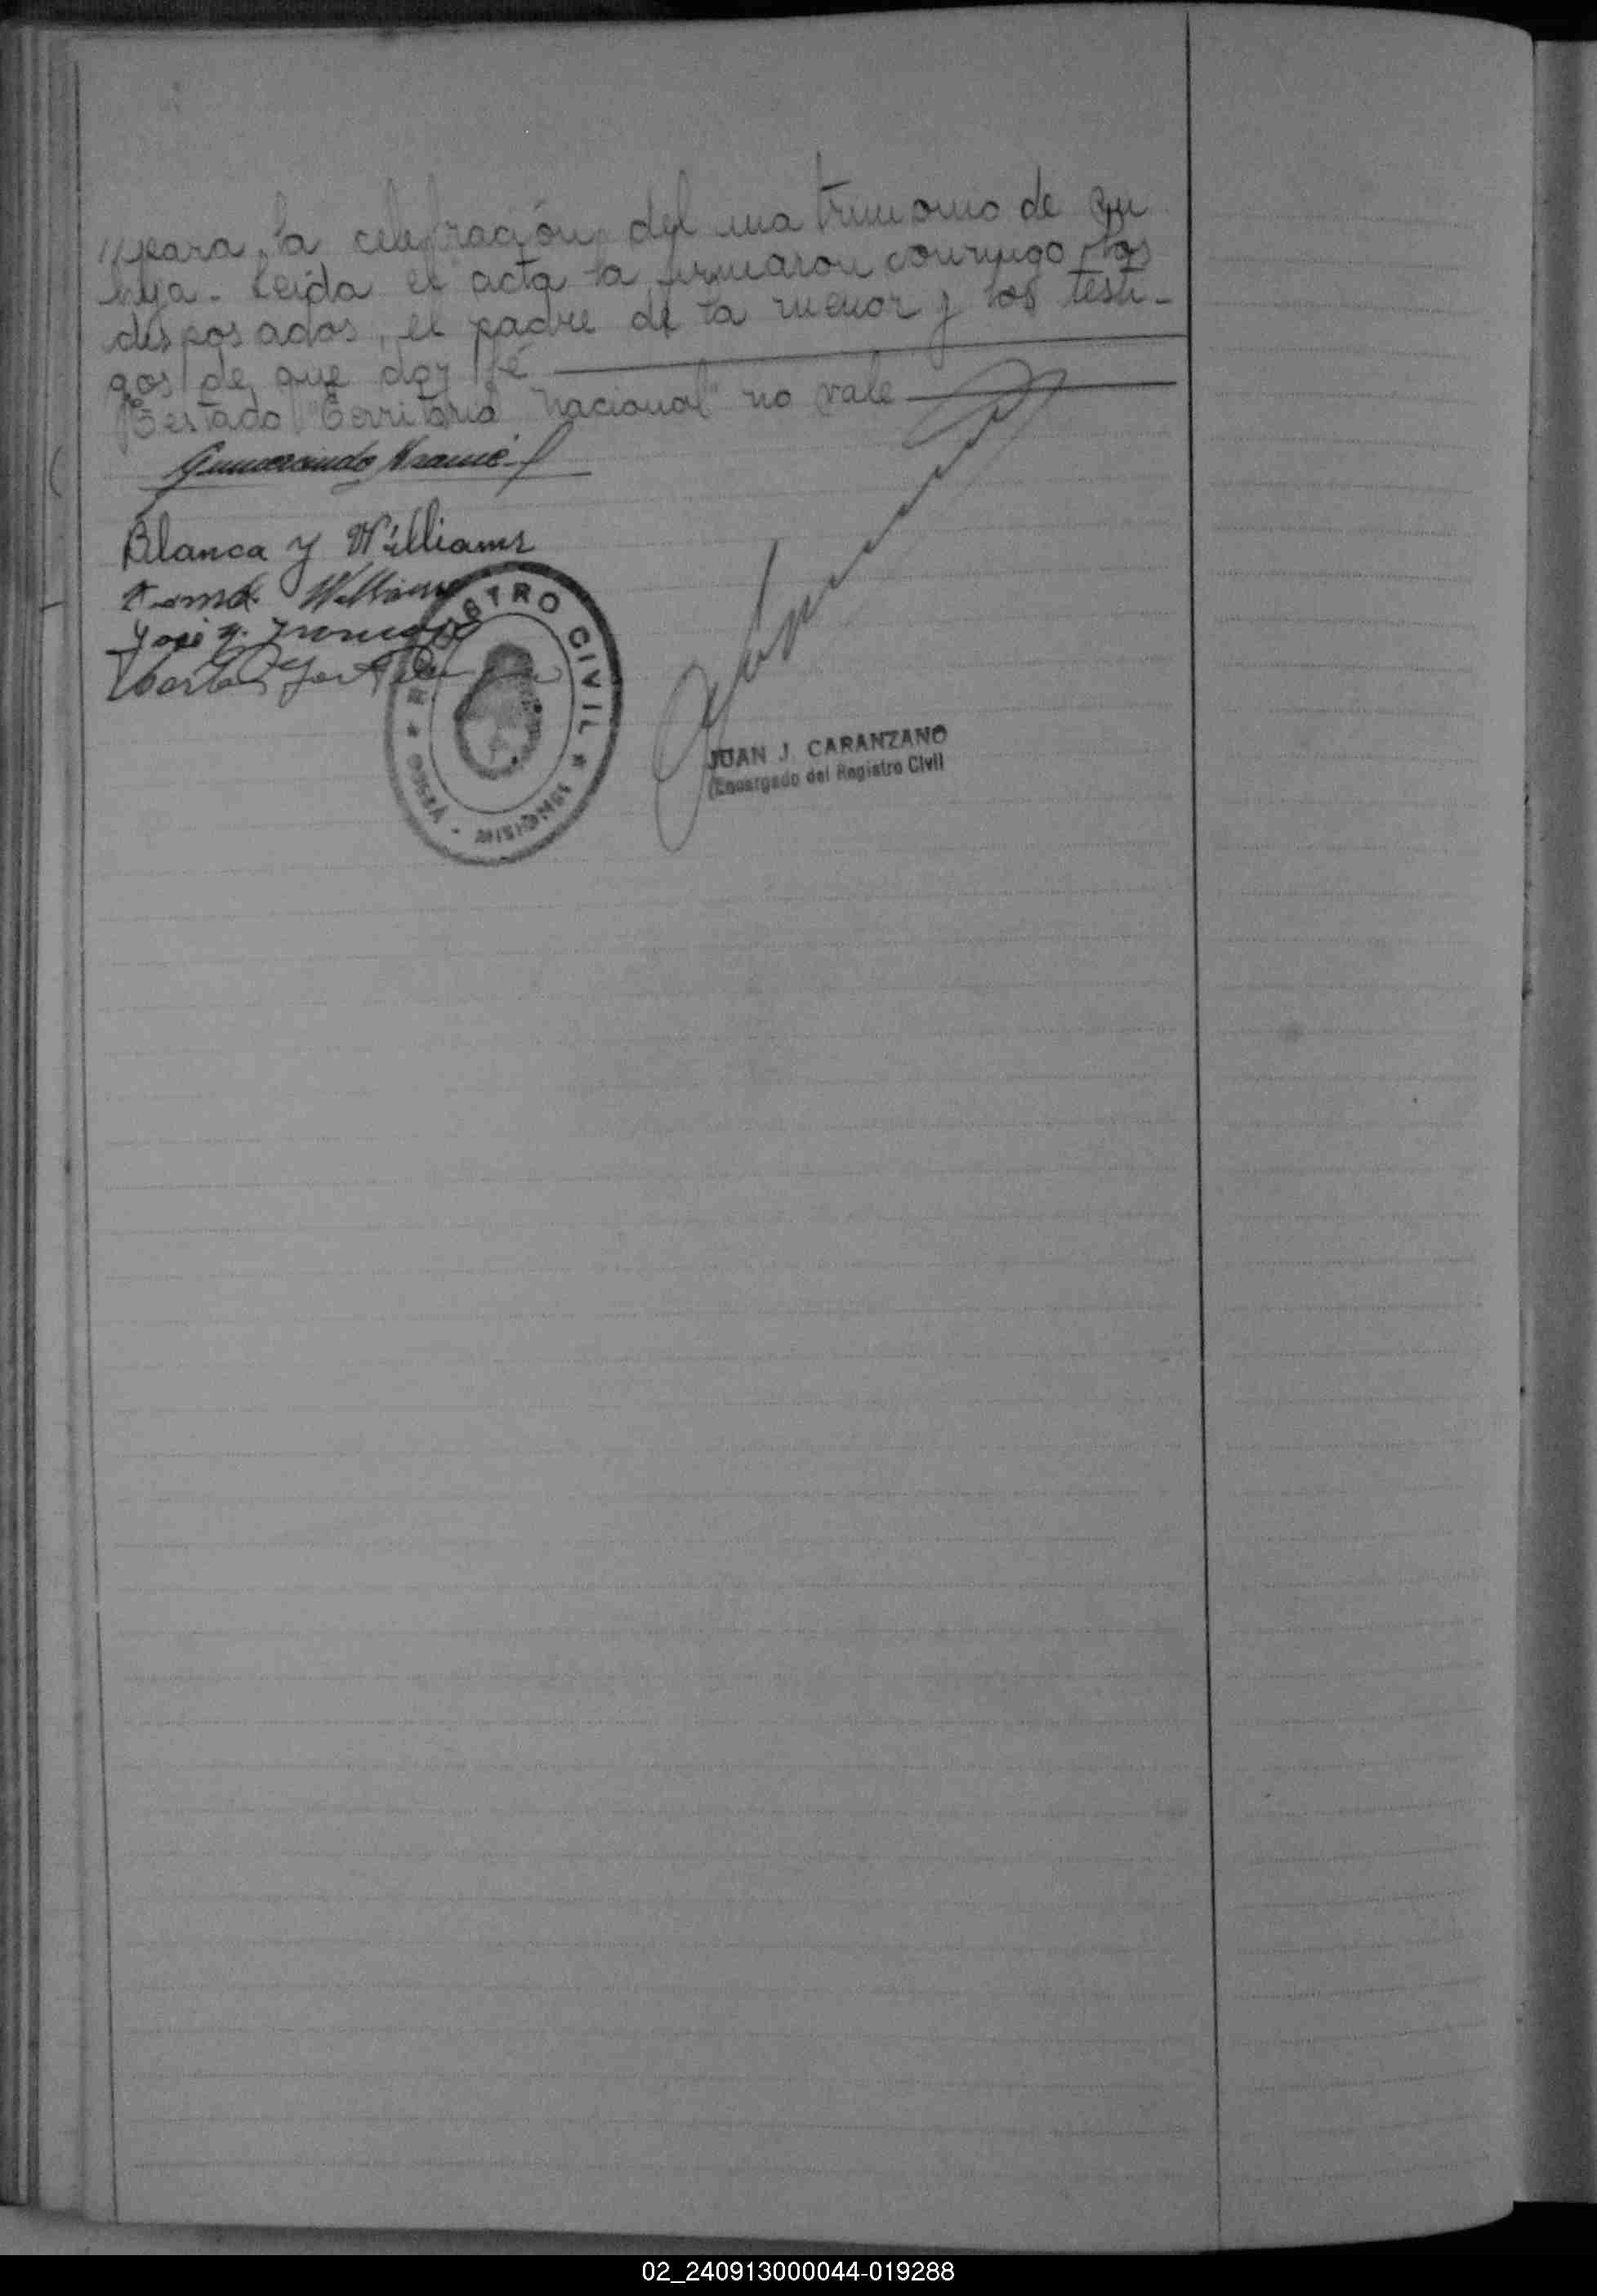 //para la celebración del matrimonio de su
hija. Leída el acta la firmaron conmigo los
desposados, el padre de la menor y los testi-
gos de que doy fé
Testado "Territorio Nacional" no vale
Blanca y Williams
Williams
José
REGISTRO CIVIL
MISIONES
JUAN J. CARANZANO
Encargado del Registro Civil
02_240913000044-019288